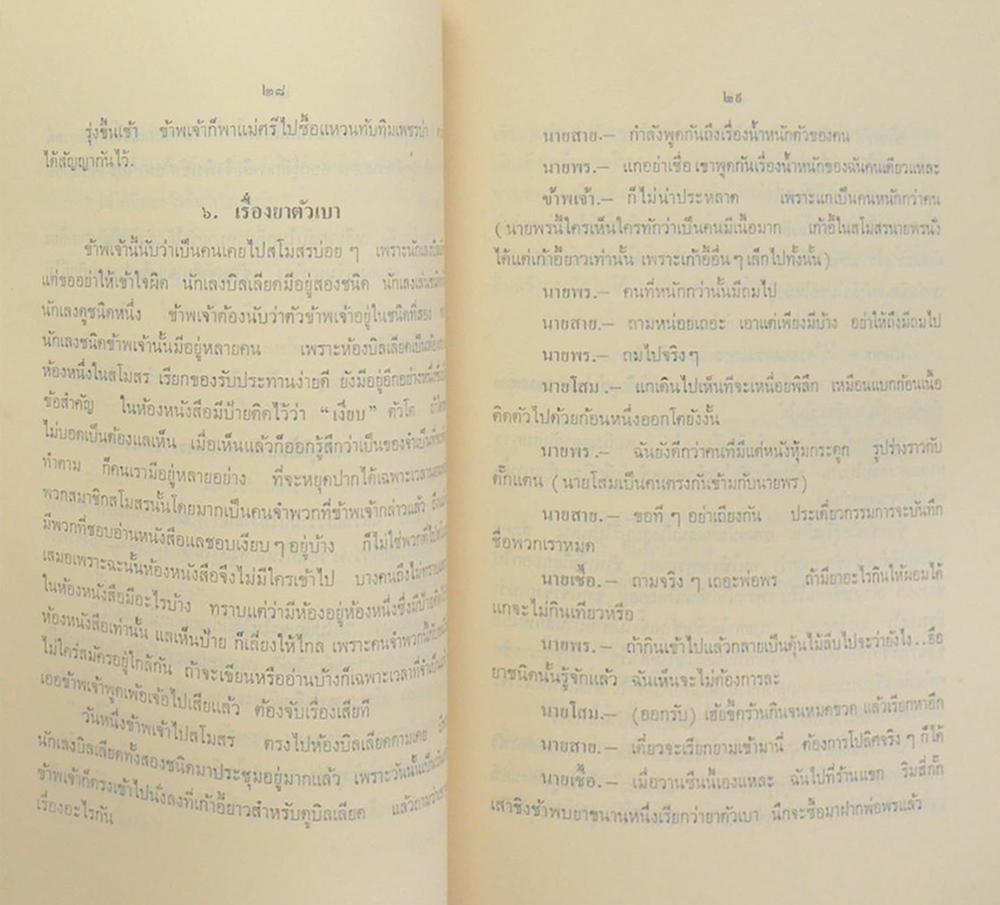 ๒๘
รุ่งขึ้นเช้า ข้าพเจ้าก็พาแม่ศรีไปซื้อแหวนทับทิมเพชรบ่า
ได้สัญญากันไว้.
๖. เรื่องยาตัวเบา
ข้าพเจ้านี้นับว่าเป็นคนเคยไปสโมสรบ่อย ๆ เพราะนักเลง
แต่ขออย่าให้เข้าใจผิด นักเลงบิลเลียดมีอยู่สองชนิด นักเลงเล่น
นักเลงดูชนิดหนึ่ง ข้าพเจ้าต้องนับว่าตัวข้าพเจ้าอยู่ในชนิดที่สอง
นักเลงชนิดข้าพเจ้านั้นมีอยู่หลายคน เพราะห้องบิลเลียดเป็น
ห้องหนึ่งในสโมสร เรียกของรับประทานง่ายดี ยังมีอยู่อีกอย่างหนึ่ง
ข้อสำคัญ ในห้องหนังสือมีป้ายติดไว้ว่า “เงียบ” ตัวโต
ไม่บอดเป็นต้องแลเห็น เมื่อเห็นแล้วก็ออกรู้สึกว่าเป็นของจำเป็น
ทำตาม ก็คนเรามีอยู่หลายอย่าง ที่จะหยุดปากได้เฉพาะเวลา
พวกสมาชิกสโมสรนั้นโดยมากเป็นคนจำพวกที่ข้าพเจ้ากล่าวแล้ว
มีพวกที่ชอบอ่านหนังสือแลชอบเงียบ ๆ อยู่บ้าง ก็ไม่ใช่พวกที่ไป
เสมอเพราะฉะนั้นห้องหนังสือจึงไม่มีใครเข้าไป บางคนถึงไม่ทราบ
ในห้องหนังสือมีอะไรบ้าง ทราบแต่ว่ามีห้องอยู่ห้องหนึ่งซึ่งมีป้าย
ห้องหนังสือเท่านั้น แลเห็นป้าย ก็เลี่ยงให้ไกล เพราะคนจำพวกนี้
ไม่ใคร่สมัครอยู่ใกล้กัน ถ้าจะเขียนหรืออ่านบ้างก็เฉพาะเวลาที่จำเป็น
เออข้าพเจ้าพูดเพ้อเจ้อไปเสียแล้ว ต้องจับเรื่องเสียที
วันหนึ่งข้าพเจ้าไปสโมสร ตรงไปห้องบิลเลียดตามเคย
นักเลงบิลเลียดทั้งสองชนิดมาประชุมอยู่มากแล้ว เพราะวันนั้น
ข้าพเจ้าก็ตรงเข้าไปนั่งลงที่เก้าอี้ยาวสำหรับดูบิลเลียด แล้วถามว่า
เรื่องอะไรกัน
๒๙
นายสาย.— กำลังพูดกันถึงเรื่องน้ำหนักตัวของคน
นายพร.— แกอย่าเชื่อ เขาพูดกันเรื่องน้ำหนักของฉันคนเดียวแหละ
ข้าพเจ้า.— ก็ไม่น่าประหลาด เพราะแกเป็นคนหนักกว่าคน
(นายพรนี้ใครเห็นใครทักว่าเป็นคนมีเนื้อมาก เก้าอี้ในสโมสรนายพรนั่ง
ได้แต่เก้าอี้ยาวเท่านั้น เพราะเก้าอี้อื่น ๆ เล็กไปทั้งนั้น)
นายพร.— คนที่หนักกว่านั้นมีถมไป
นายสาย.— ถามหน่อยเถอะ เอาแต่เพียงมีบ้าง อย่าให้ถึงมีถมไป
นายพร.— ถมไปจริงๆ
นายโสม.— แกเดินไปเห็นที่จะเหนื่อยพิลึก เหมือนแบกก้อนเนื้อ
ติดตัวไปด้วยก้อนหนึ่งออกโตยังงั้น
นายพร.— ฉันยังดีกว่าคนที่มีแต่หนังหุ้มกระดูก รูปร่างราวกับ
ตั๊กแตน (นายโสมเป็นคนตรงกันข้ามกับนายพร)
นายสาย.— ขอที ๆ อย่าเถียงกัน ประเดี๋ยวกรรมการจะบันทึก
ชื่อพวกเราหมด
นายเชื้อ.— ถามจริง ๆ เถอะพ่อพร ถ้ามียาอะไรกินให้ผอมได้
แกจะไม่กินเทียวหรือ
นายพร.— ถ้ากินเข้าไปแล้วกลายเป็นตุ้นไม้ลีบไปจะว่ายังไง..ฮือ
ยาชนิดนั้นรู้จักแล้ว ฉันเห็นจะไม่ต้องการละ
นายโสม.— (ออกรับ) เฮ้ยขี้คร้านกินจนหมดขวด แล้วเรียกหาอีก
นายสาย.— เดี๋ยวจะเรียกยามเข้ามานี่ ต้องการโปลิศจริง ๆ ก็ได้
นายเชื้อ.— เมื่อวานซืนนี้เองแหละ ฉันไปที่ร้านแขก ริมสี่กั๊ก
เสาชิงช้าพบยาขนานหนึ่งเรียกว่ายาตัวเบา นึกจะซื้อมาฝากพ่อพรแล้ว